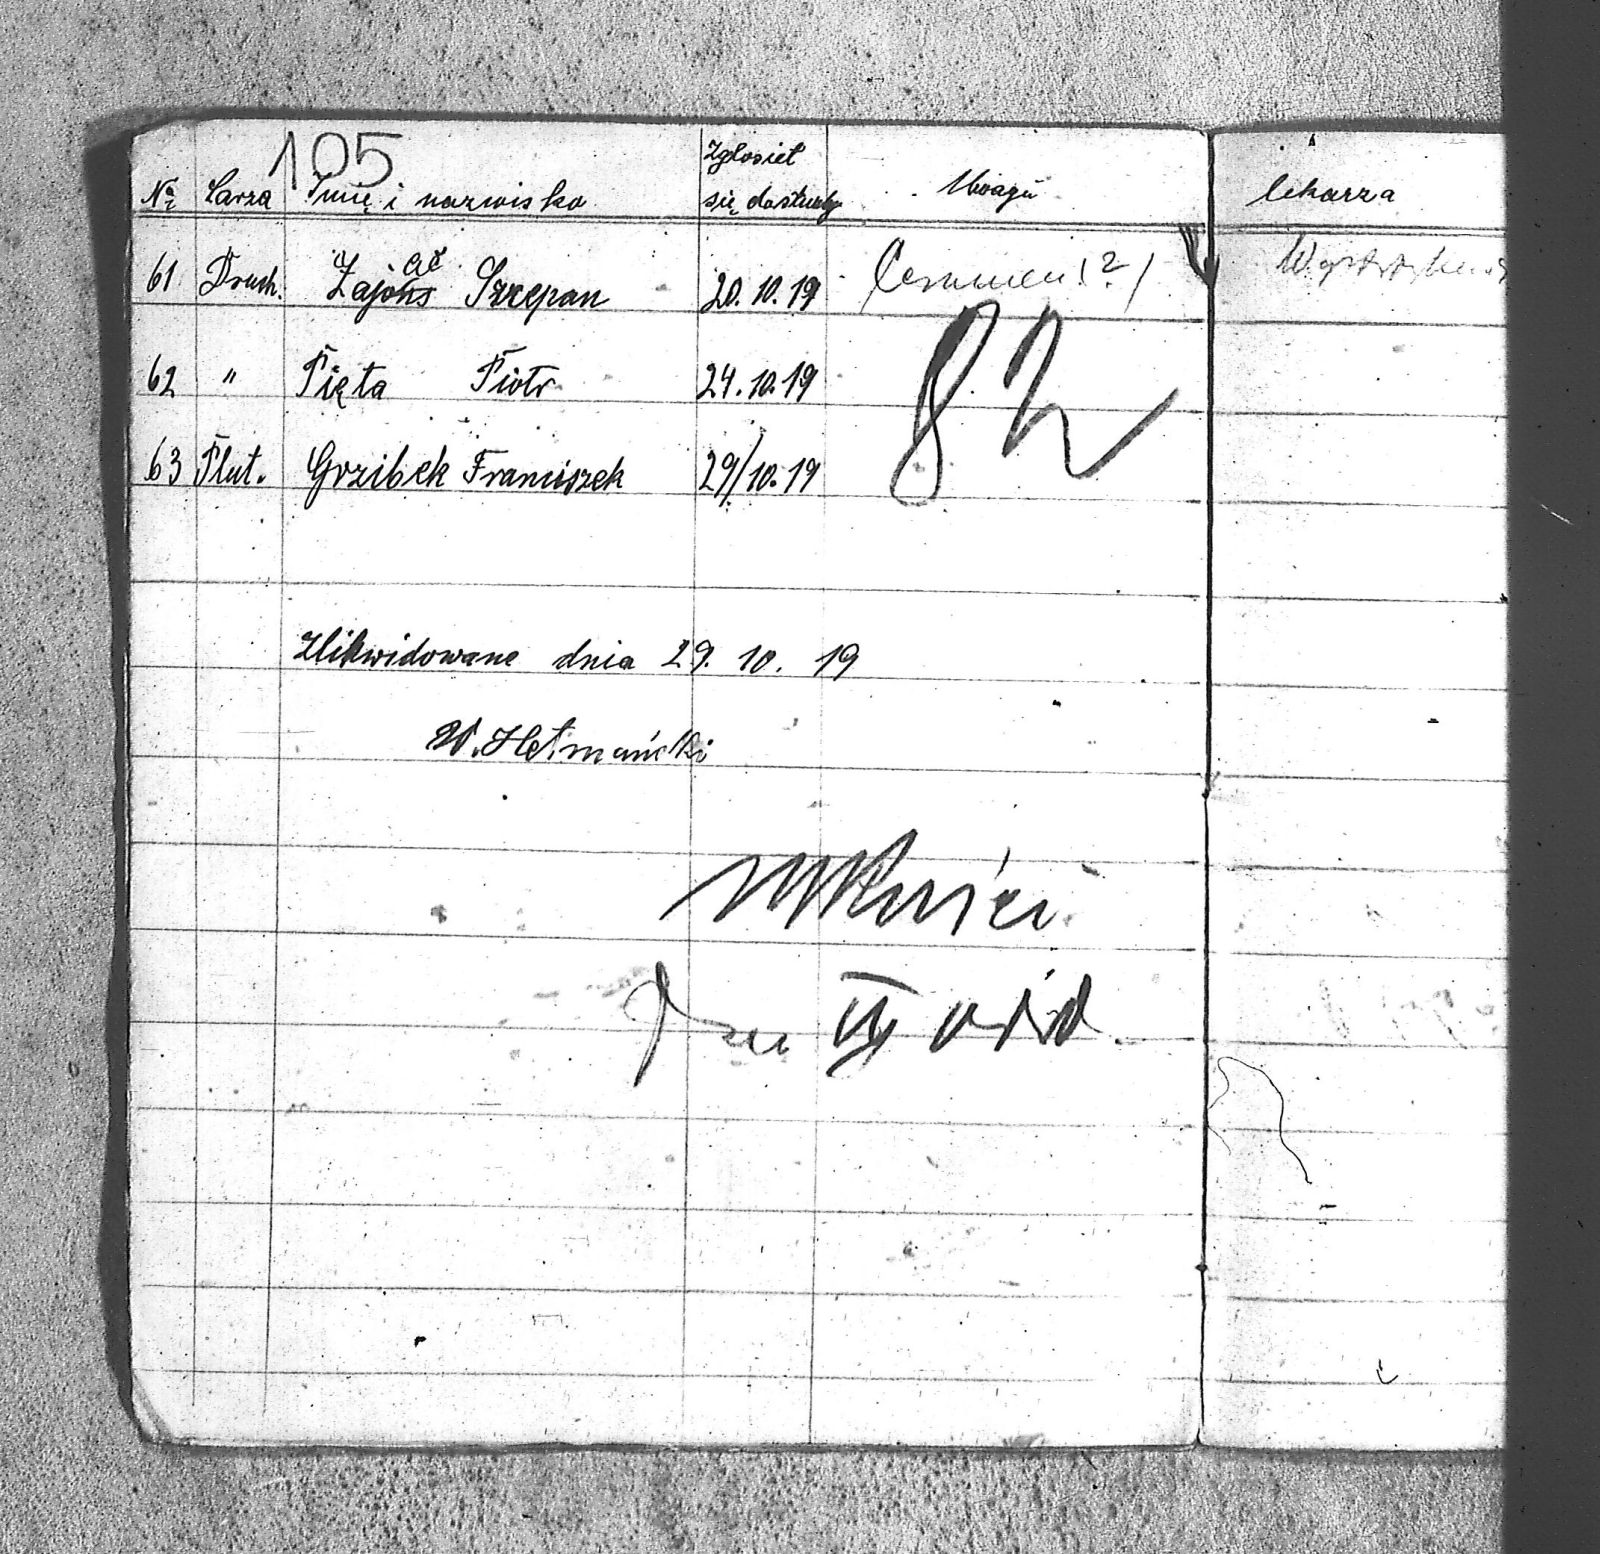 105
№ Szarza Imię i nazwisko Zgłosiel się do służby Uwagi lekarza
61 Druh. Zajons ac Szczepan 20.10.19 (?)
62 " Pięta Piotr 24.10.19
82
63 Plut. Grzibek Franciszek 29/10.19
Zlikwidowane dnia 29. 10. 19
W. Hetmański